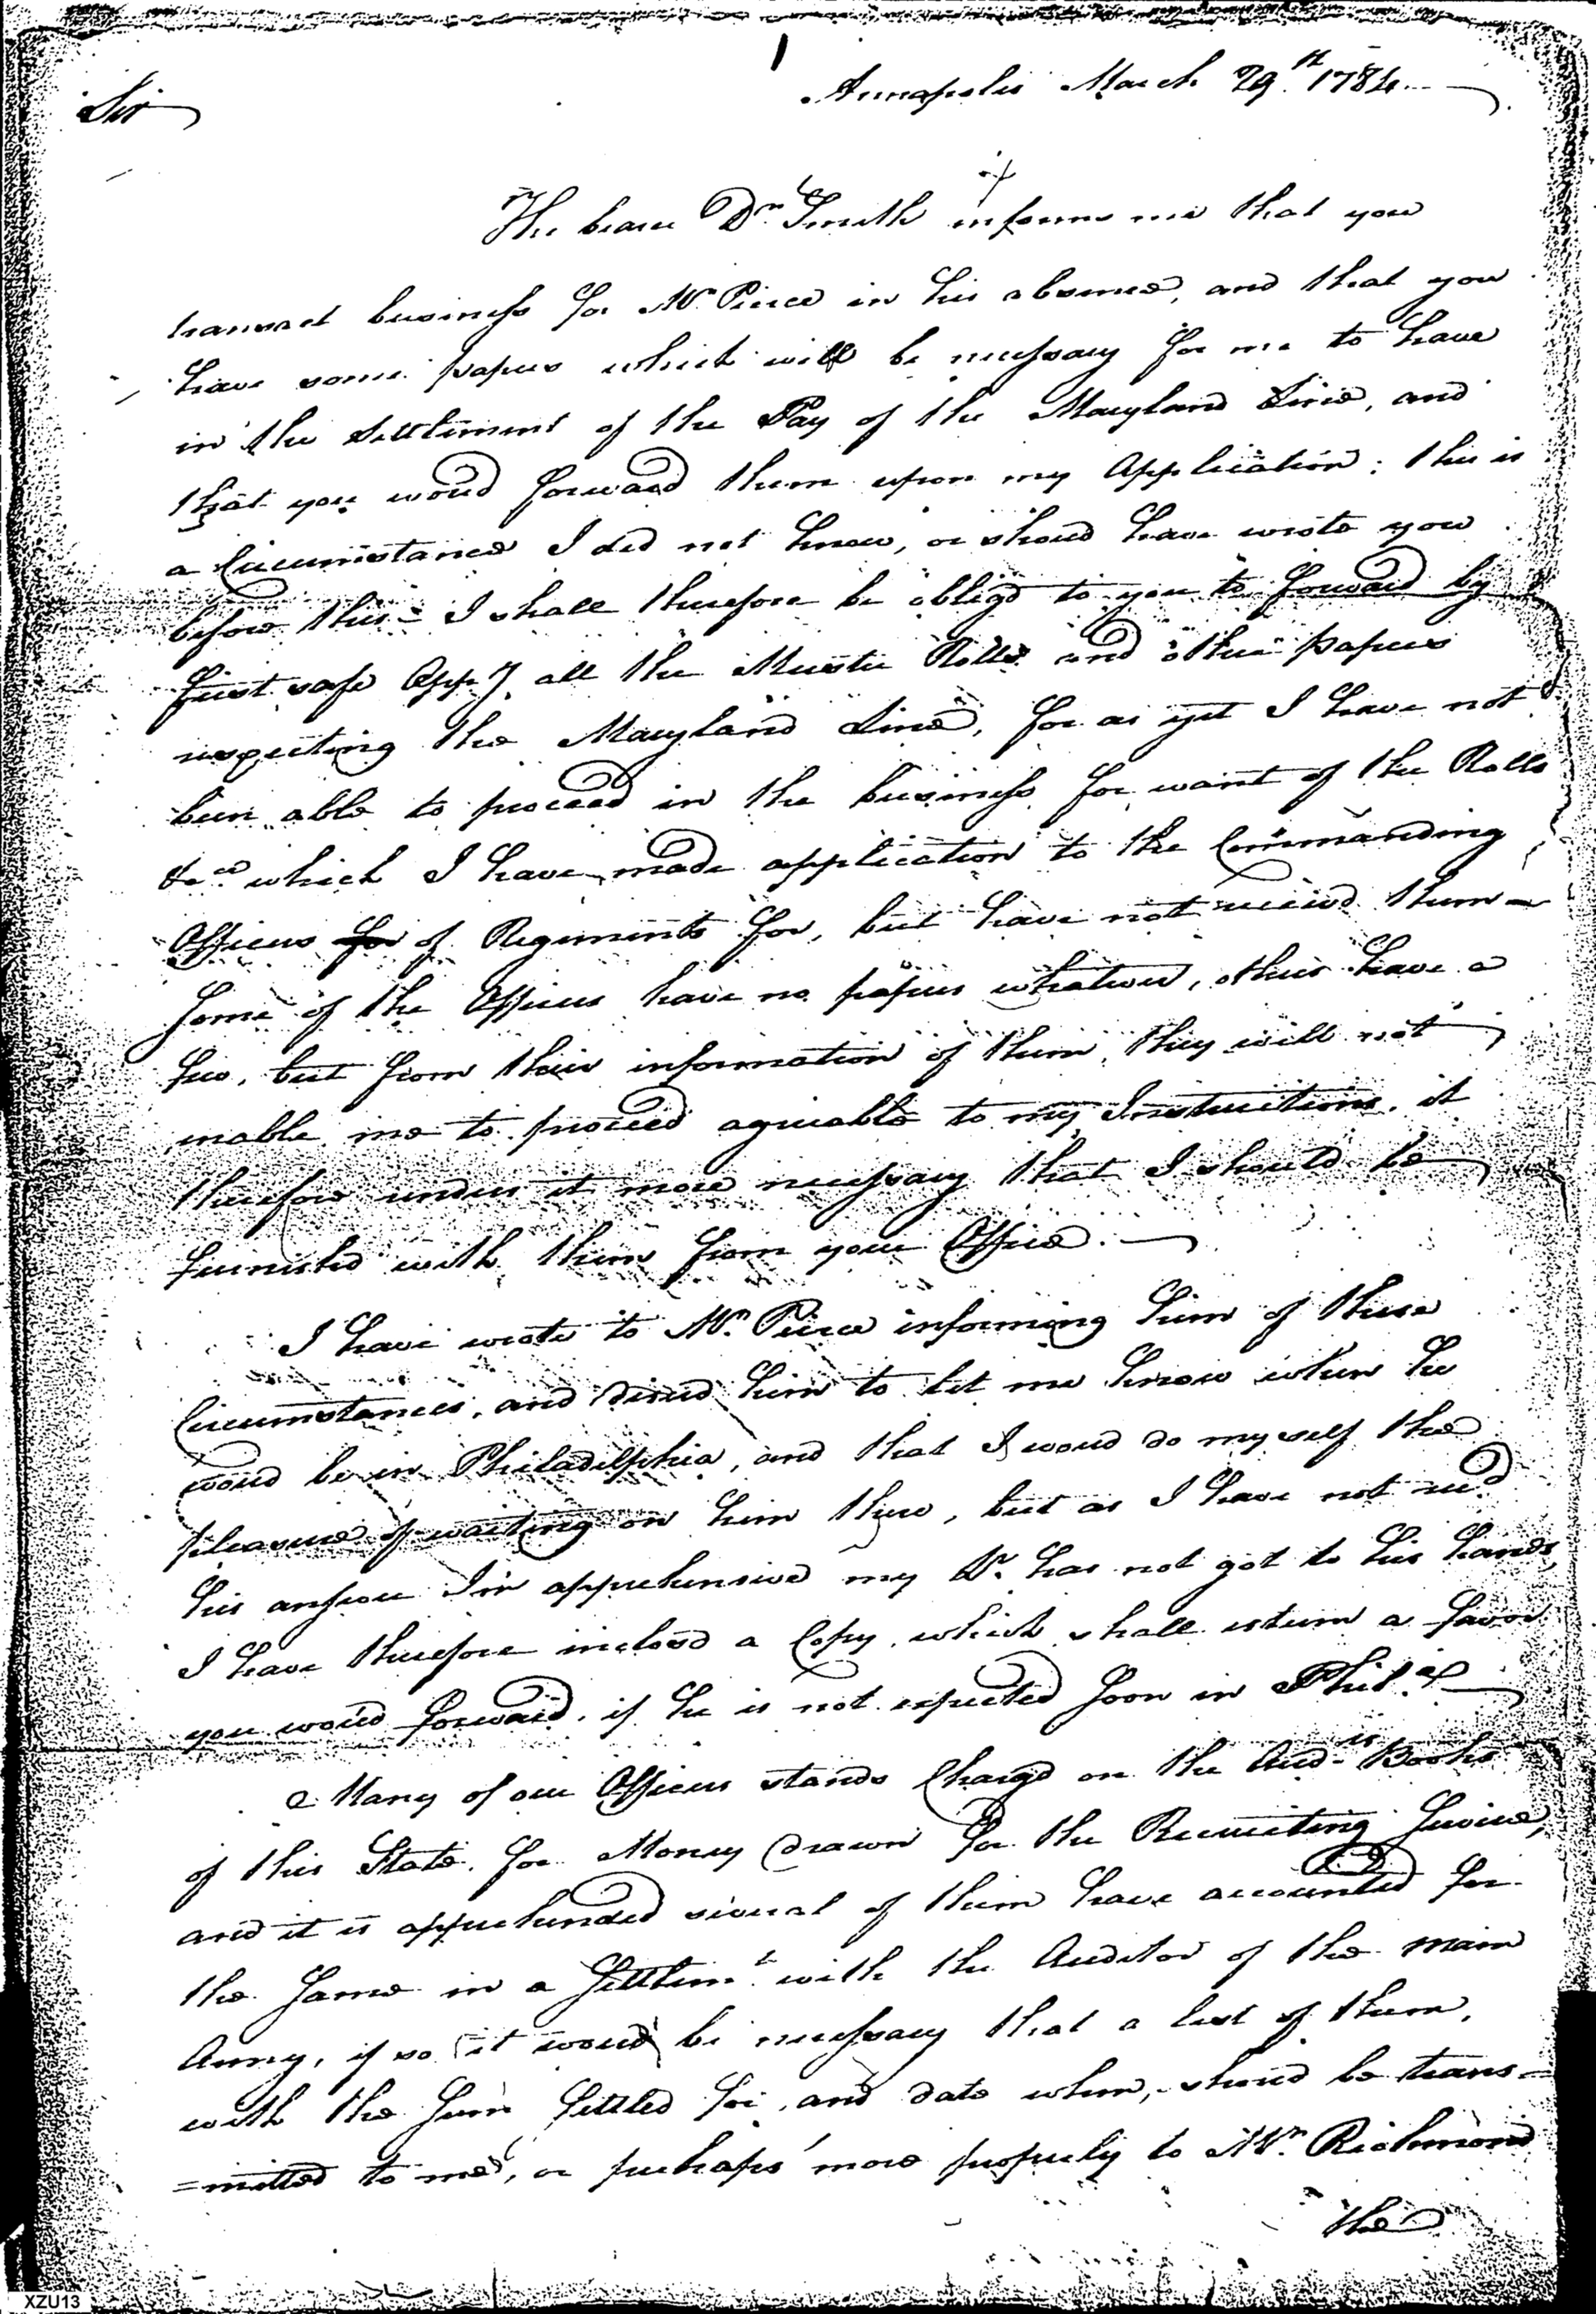 Annapolis March 29th. 1784
Sir
The bearer Dr. Smith informs me that you
transact business for Mr. Pierce in his absence, and that you
have some papers which will be necessary for me to have
in the Settlement of the Pay of the Maryland Line, and
that you woud forward them upon my Application; this is
a Circumstance I did not know, or shoud have wrote you
before this - I shall therefore be obligd to you to forward by
first safe Oppy. all the Muster Rolls and other papers
respecting the Maryland Line, for as yet I have not
been able to proceed in the business for want of the Rolls
&ca. which I have made application to the Commanding
Officers for of Regiments for, but have not receivd them -
Some of the Officers have no papers whatever, others have a
few, but from their information of them, they will not
enable me to proceed agreeable to my Instructions, it
therefore renders it more necessary that I should be
furnished with them from your Office.
I have wrote to Mr. Pierce informing him of these
Circumstances, and desired him to let me know when he
woud be in Philadelphia, and that I woud do myself the
pleasure of waiting on him there, but as I have not recd.
his answer I'm apprehensive my Lr. has not got to his hands,
I have therefore inclosd a Copy, which shall esteem a favor
you woud forward, if he is not expected soon in Phila.
Many of our Officers stands Chargd on the Audrs. Books
of this State, for Money drawn for the Recruiting Service,
and it is apprehended several of them have accounted for
the same in a Settlemt. with the Auditor of the main
Army, if so it woud be necessary that a list of them,
with the Sum Settled for, and date when, shoud be trans=
=mitted to me, or perhaps more properly to Mr. Richmond
the
XZU13